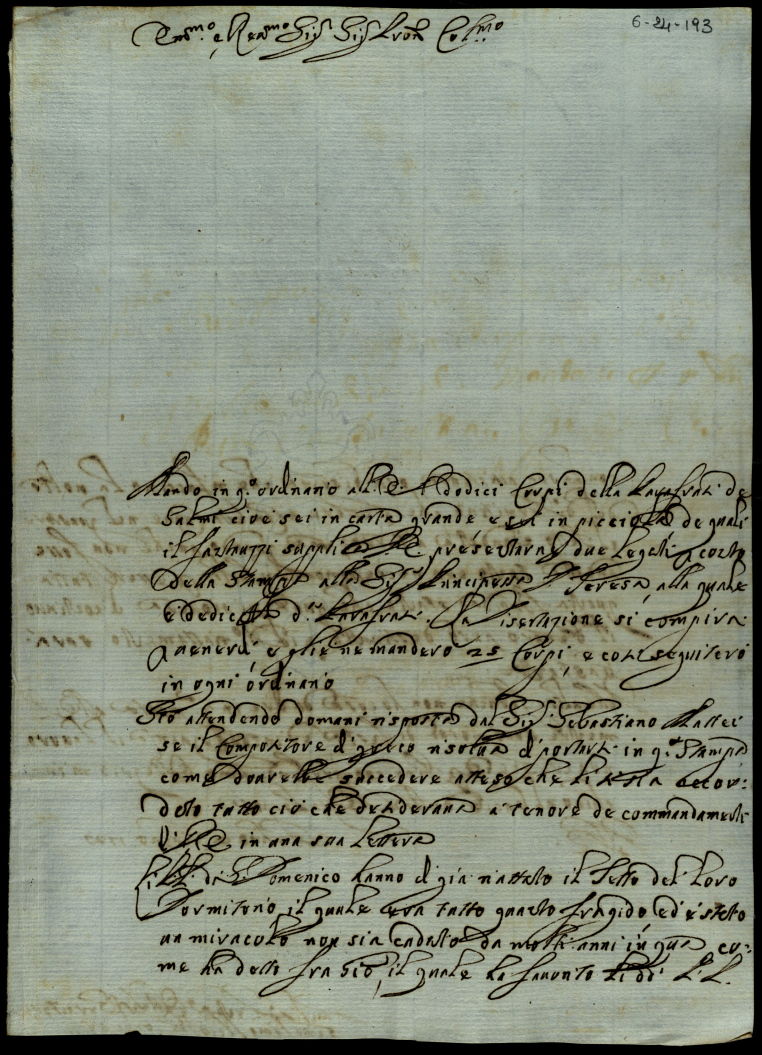 Em.mo e Reu.mo Sig.r Sig.r Pron Col.mo
6-24-193
Mando in q.o ordinario all' E. V. dodici Corpi della Parafrasi de
Salmi cioè sei in carta grande e sei in picciola de quali
il Fantuzzi supplica V. E. presentarne due legati a conto
della Stampa alla Sig.ra Principessa D. Teresa, alla quale
è dedicata d.a Parafrasi. La Disertazione si compirà
Auenerdì e glie ne manderò 25 Corpi, e così seguiterò
in ogni ordinario
Sto attendendo domani risposta dal Sig. Sebastiano Mattei
se il Compositore di greco risolua di portarsi in q.a Stampa
come dourebbe succedere atteso che li si sia accor:
dato tutto ciò che desideraua a tenore de commandamenti
di V. E. in una sua lettera
Li PP. di S. Domenico hanno di già riattato il Tetto del loro
Dormitorio, il quale era tutto guasto fragido ed è stato
un miracolo non sia caduto da molti anni in qua, co:
me ha detto fra Gio, il quale ha fauorito li dd.i PP.